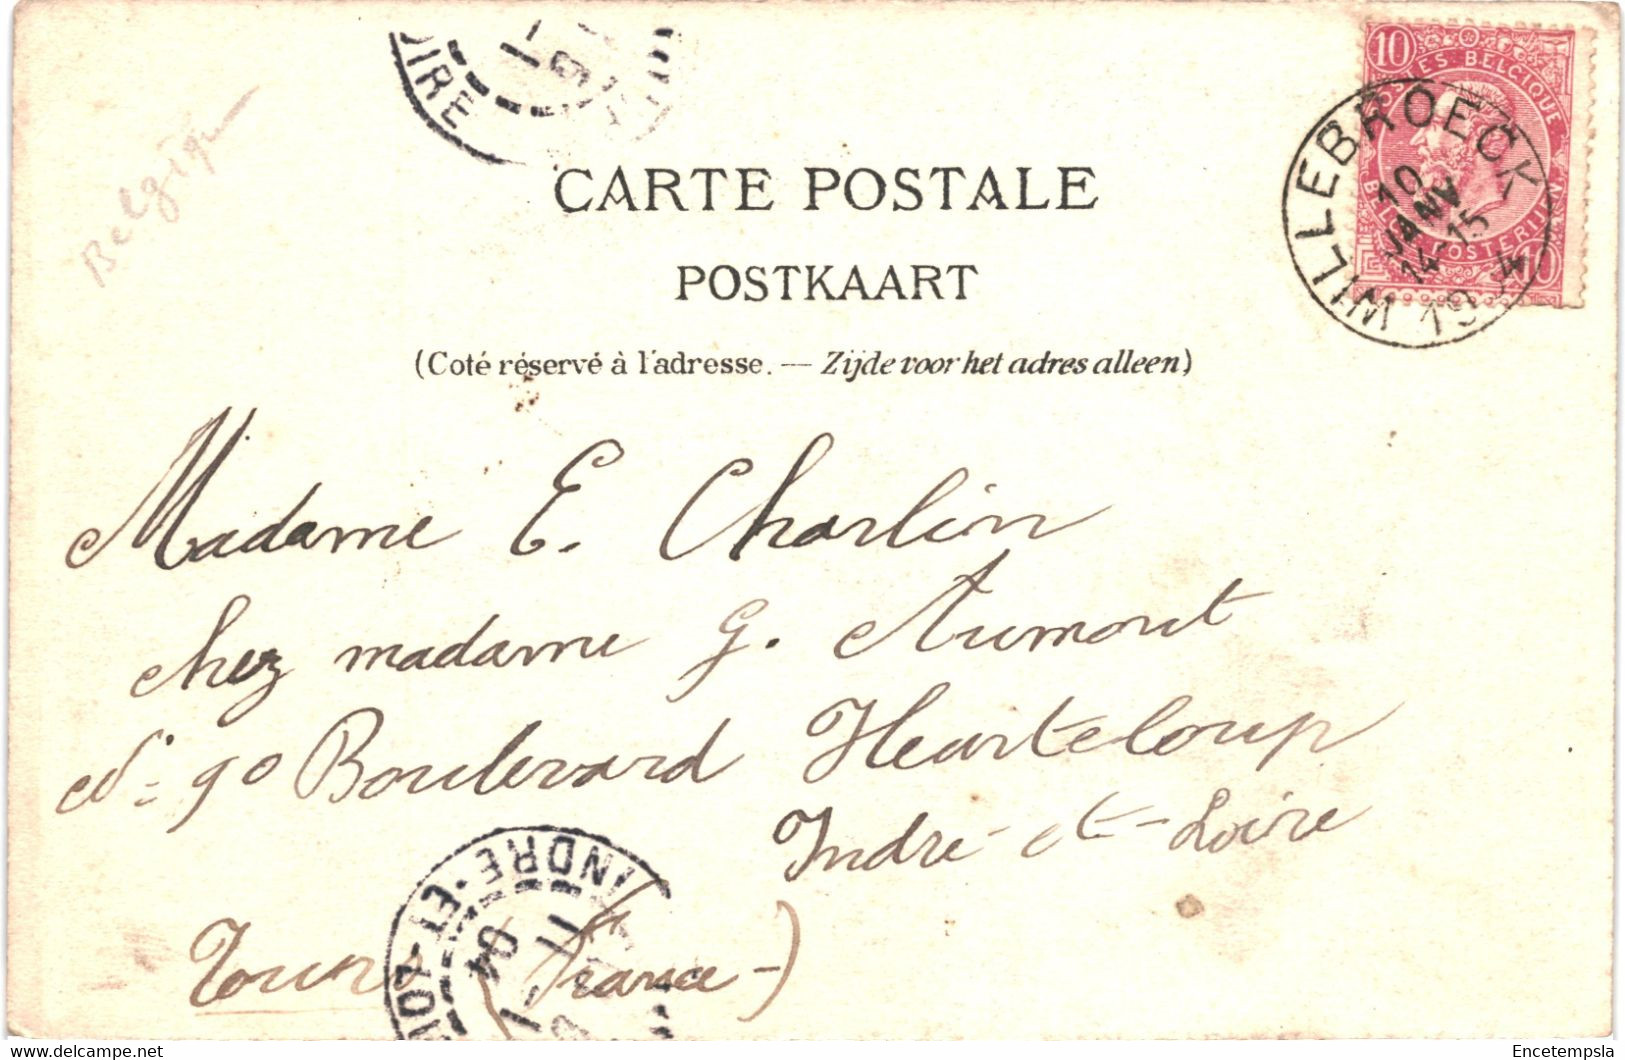 OIRE
10 POSTES BELGIQUE
BELGIE POSTERIJEN 10
WILLEBROECK
10
JANV
14-15
1904
Belgique
CARTE POSTALE
POSTKAART
(Coté réservé à l'adresse. — Zijde voor het adres alleen)
Madame E. Charlin
chez madame G. Aumont
N° 90 Boulevard Heurteloup
Indre-et-Loire
Tours (France)
INDRE-ET-LOIRE
11-1
04
Encetempsla